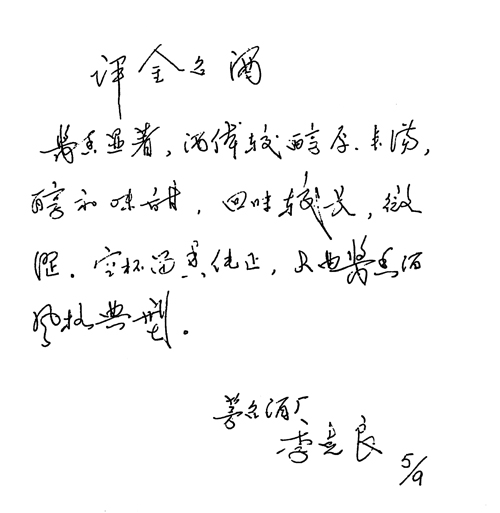 评金名酒
酱香显著，酒体较醇厚、丰满，
醇和味甜，回味较长，微
涩。空杯留香纯正，具有酱香酒
风格典型。
名酒厂
李克良
5/9